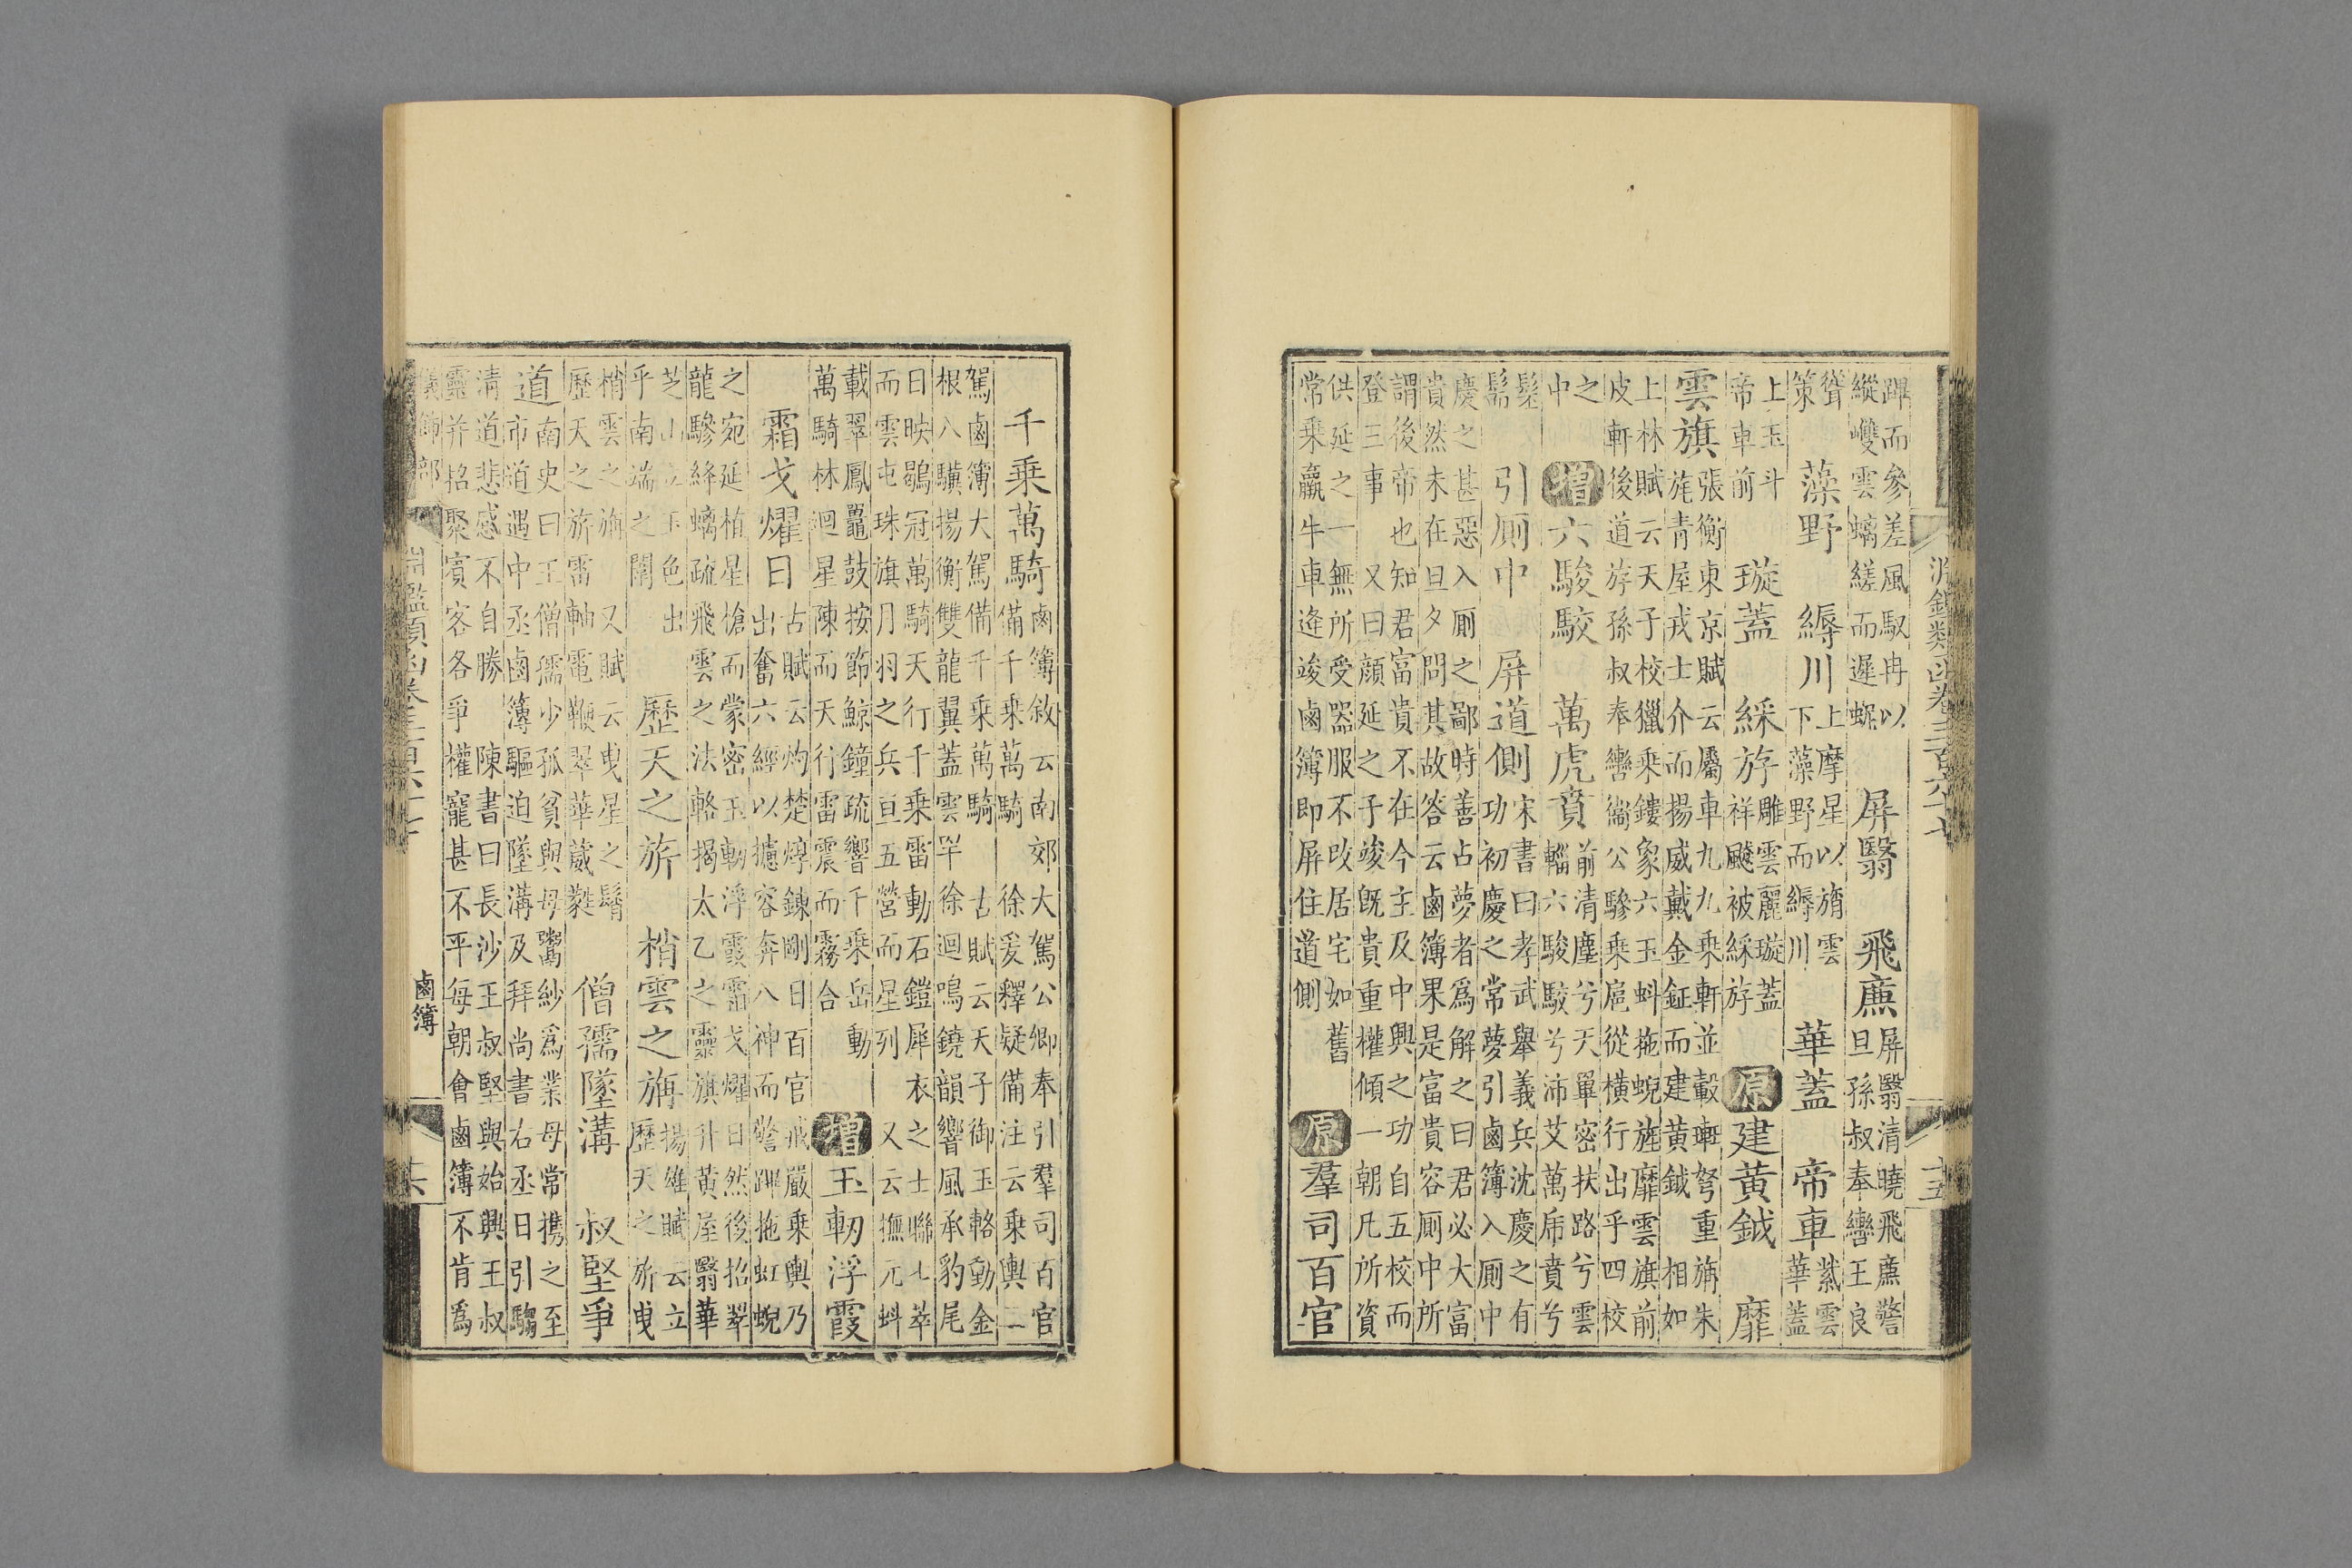 淵鑑類函卷三百六十七
十五
蹕而參差風馭冉以
縱巙雲螭縒而遲蜿
屏翳 飛廉
屏翳清曉飛廉警
旦孫叔奉轡王良
聳
策
藻野 縟川
上摩星以旓雲
下藻野而縟川
華蓋 帝車
紫雲
華蓋
上玉斗
帝車前
璇蓋 綵斿
雕雲麗璇蓋
祥飈被綵斿
原 建黄鉞 靡
雲旗
張衡東京賦云屬車九九乘軒並轂弩重旃朱
旄青屋戎士介而揚威戴金鉦而建黄鉞 相如
上林賦云天子校獵乘鏤象六玉虯拖蜺旌靡雲旗前
皮軒後道斿孫叔奉轡衞公驂乗扈從橫行出乎四校
之
中
增 六駿駮 萬虎賁
前清塵兮天單密扶路兮雲
輜六駿駮兮沛艾萬虎賁兮
髬
髵
引厠中 屏道側
宋書曰孝武舉義兵沈慶之有
功初慶之常夢引鹵簿入厠中
慶之甚惡入厠之鄙時善占夢者爲解之曰君必大富
貴然未在旦夕問其故答云鹵簿果是富貴容厠中所
謂後帝也知君富貴不在今主及中興之功自五校而
登三事 又曰顔延之子竣旣貴重權傾一朝凡所資
供延之一無所受器服不改居宅如舊
常乗羸牛車逢竣鹵簿即屏住道側
原 羣司百官
千乗萬騎
鹵簿敘云南郊大駕公卿奉引羣司百官
備千乗萬騎 徐爰釋疑備注云乗輿二
駕鹵簿大駕備千乗萬騎 古賦云天子御玉輅動金
根八驥揚衡雙龍翼蓋雲䍐徐迴鳴鐃韻響風承豹尾
日映鶡冠萬騎天行千乗雷動石鎧犀衣之士聯七萃
而雲屯珠旗月羽之兵亘五營而星列 又云撫元虯
載翠鳳鼉鼓按節鯨鐘疏響千乗岳動
萬騎林迴星陳而天行雷震而霧合
增 玉軔浮霞
霜戈燿日
古賦云灼楚焞鍊剛日百官戒嚴乗輿乃
出奮六經以攄容奔八神而警蹕拖虹蜺
之宛延植星槍而蒙密玉軔浮霞霜戈燿日然後招翠
龍驂絳螭疏飛雲之法輅揭太乙之靈旗升黄屋翳華
芝山立玉色出
乎南端之闈
歷天之旂 梢雲之旃
揚雄賦云立
歷天之旂曳
梢雲之旃 又賦云曳星之髾
歷天之旂雷軸電鞭翠華葳蕤
僧孺墜溝 叔堅爭
道
南史曰王僧孺少孤貧與母鬻紗爲業母常携之至
市道遇中丞鹵簿驅迫墜溝及拜尚書右丞日引騶
清道悲感不自勝 陳書曰長沙王叔堅與始興王叔
靈并招聚賓客各爭權寵甚不平每朝會鹵簿不肯爲
儀飾部
淵鑑類函卷三百六十七
鹵簿
十六